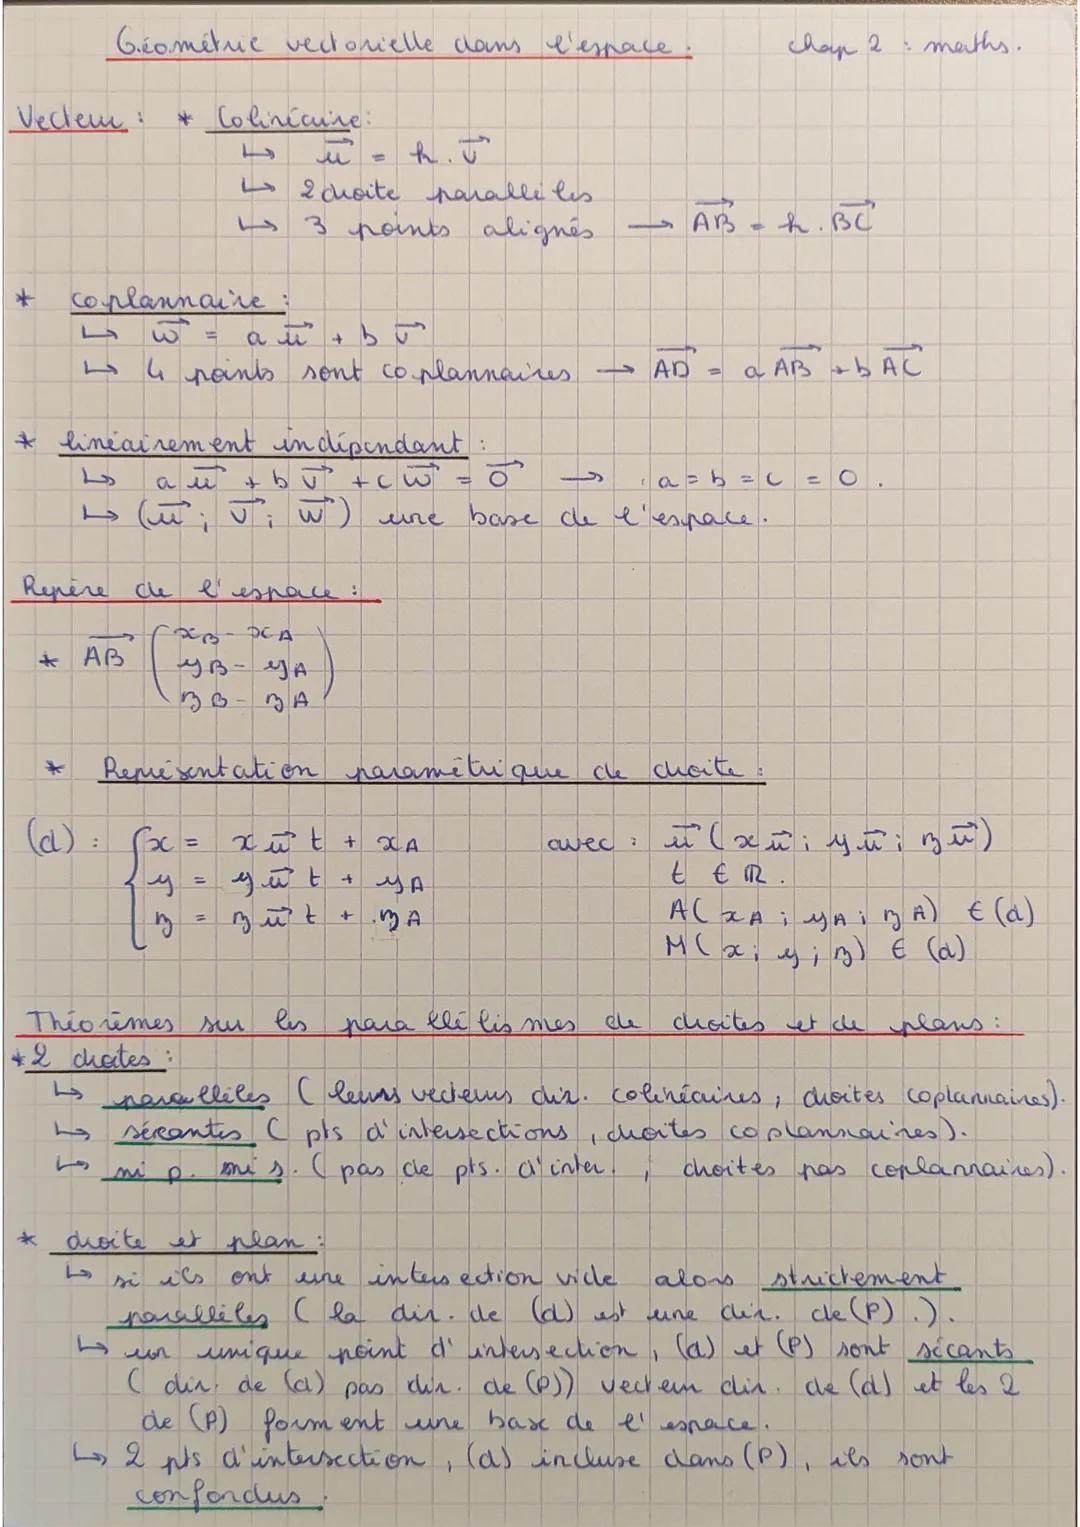 Géométrie vectorielle dans l'espace. chap 2 : maths.
Vecteur : * Colinéaire:
↳ u⃗ = k. v⃗
↳ 2 droite parallèles
↳ 3 points alignés → AB⃗ = k. BC⃗
* coplannaire :
↳ w⃗ = a u⃗ + b v⃗
↳ 4 points sont coplannaires → AD⃗ = a AB⃗ + b AC⃗
* linéairement indépendant :
↳ a u⃗ + b v⃗ + c w⃗ = 0⃗ → a = b = c = 0.
↳ (u⃗ ; v⃗ ; w⃗) une base de l'espace.
Repère de l'espace :
* AB⃗ ( xB - xA
yB - yA
zB - zA )
* Représentation paramétrique de droite :
(d) : { x = x u⃗ t + xA avec : u⃗ (x u⃗ ; y u⃗ ; z u⃗)
y = y u⃗ t + yA t ∈ ℝ.
z = z u⃗ t + zA A( xA ; yA ; zA) ∈ (d)
M( x ; y ; z) ∈ (d)
Théorèmes sur les parallélismes de droites et de plans :
* 2 droites :
↳ parallèles ( leurs vecteurs dir. colinéaires, droites coplannaires).
↳ sécantes ( pts d'intersections, droites coplannaires).
↳ ni p. ni s. ( pas de pts. d'inter. , droites pas coplannaires).
* droite et plan :
↳ si ils ont une intersection vide alors strictement
parallèles ( la dir. de (d) est une dir. de (P) .).
↳ un unique point d'intersection, (d) et (P) sont sécants
( dir. de (d) pas dir. de (P)) vecteur dir. de (d) et les 2
de (P) forment une base de l'espace.
↳ 2 pts d'intersection, (d) incluse dans (P), ils sont
confondus.